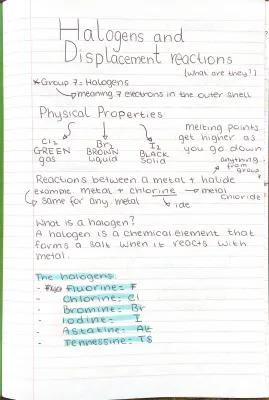 Halogens and
Displacement reactions
(what are they?)
*Group 7 = Halogens
meaning 7 electrons in the outer shell
Physical Properties
Cl2
GREEN
gas
Br2
BROWN
liquid
I2
BLACK
Solid
melting points
get higher as
you go down
Reactions between a metal + halide
anything
from
group
example. metal + chlorine → metal
chloride
same for any metal
ide
What is a halogen?
A halogen is a chemical element that
forms a salt when it reacts with
metal.
The halogens:
- Fluorine = F
- Chlorine = Cl
- Bromine = Br
- Iodine = I
- Astatine = At
- Tennessine = TS